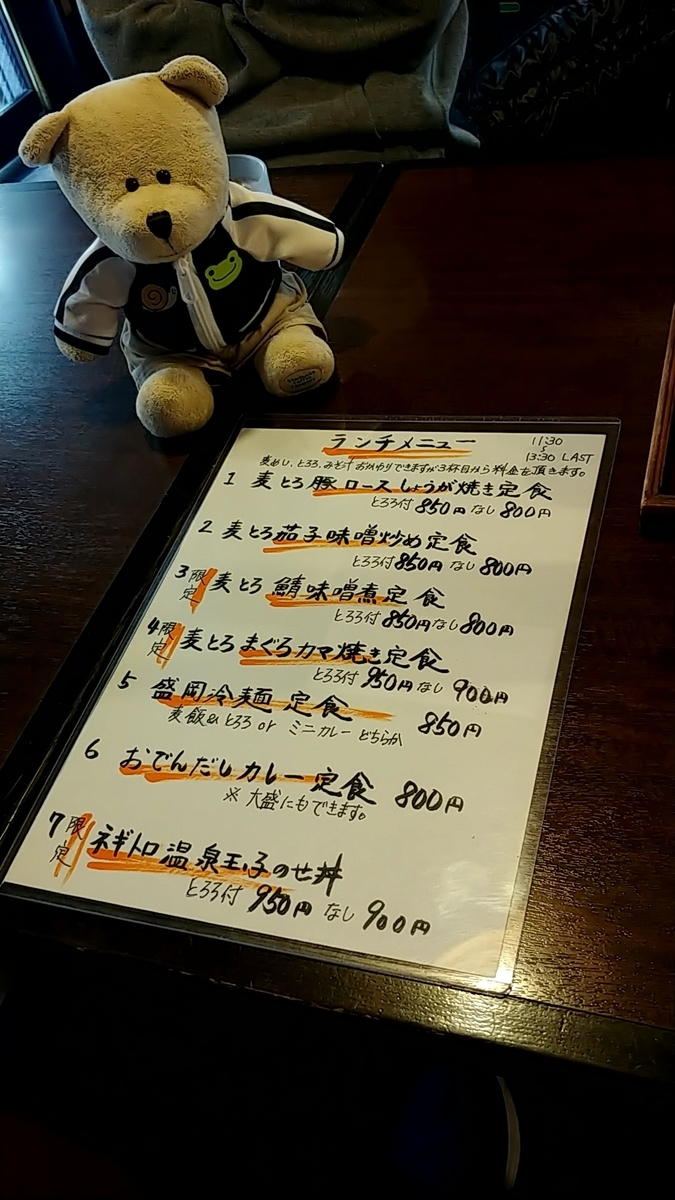 ランチメニュー
11:30
〜
13:30 LAST
麦めし、とろろ、みそ汁 おかわりできますが3杯目から料金を頂きます。
1 麦とろ豚ロースしょうが焼き定食
とろろ付 850円 なし 800円
2 麦とろ茄子味噌炒め定食
とろろ付850円 なし 800円
3 限定 麦とろ 鯖味噌煮定食
とろろ付 850円 なし 800円
4 限定 麦とろ まぐろカマ焼き定食
とろろ付 950円 なし 900円
5 盛岡冷麺 定食 850円
麦飯&とろろ or ミニカレー どちらか
6 おでんだしカレー定食 800円
※大盛にもできます。
7 限定 ネギトロ温泉玉子のせ丼
とろろ付 950円 なし 900円